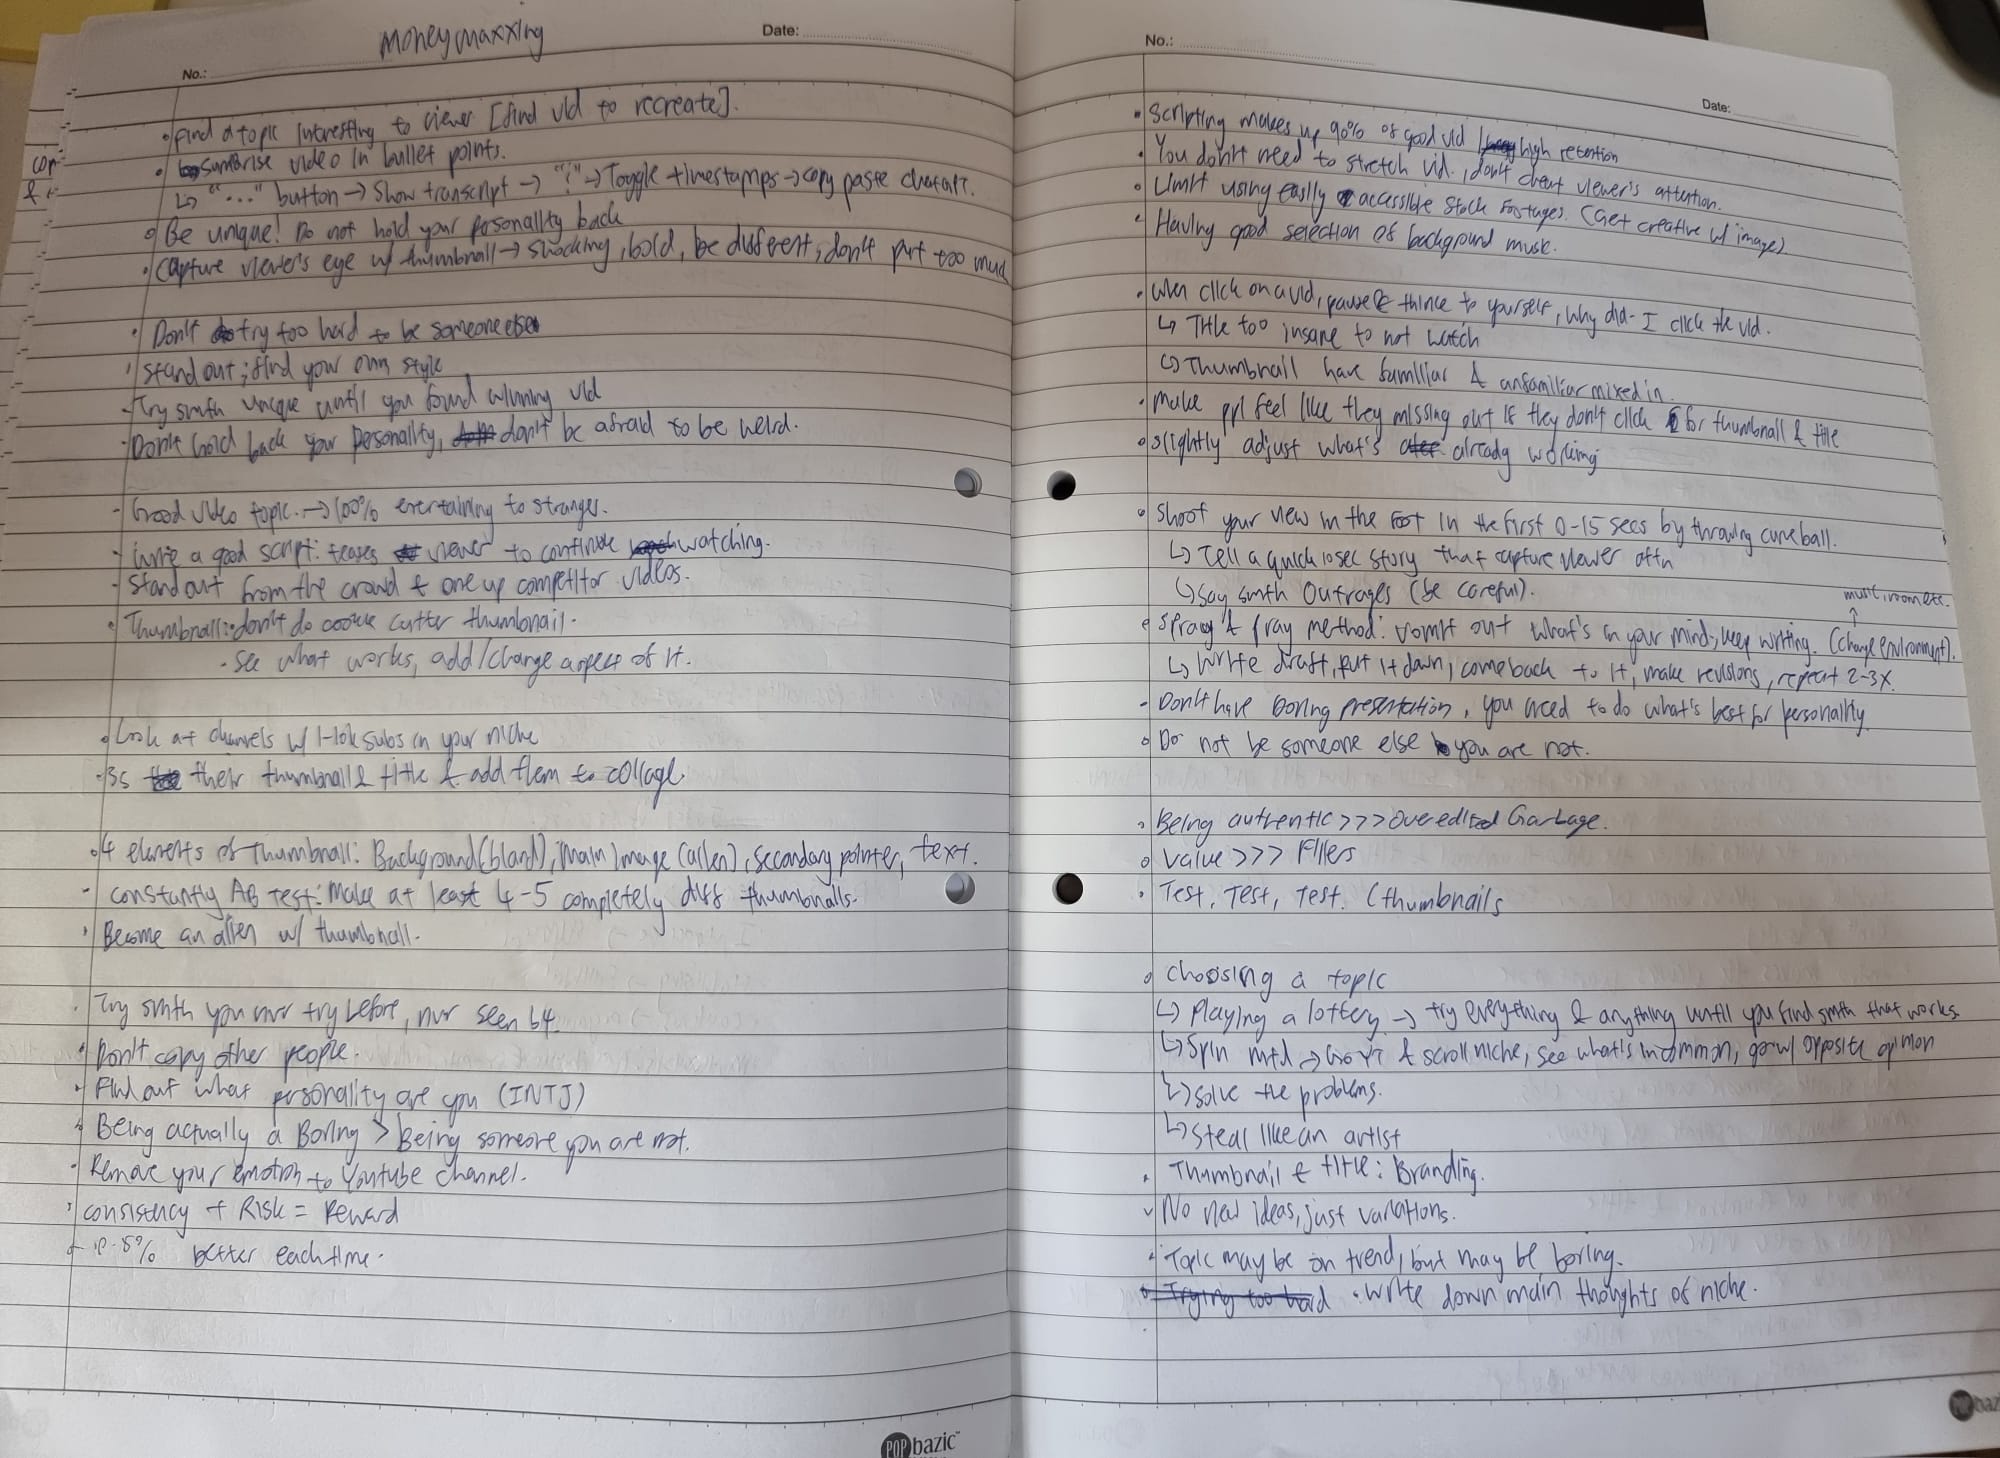 Moneymaxxing
Date:
No.:
• Find a topic interesting to viewer [find vid to recreate].
• summarise video in bullet points.
↳ "..." button → Show transcript → "⋮" → Toggle timestamps → copy paste chatGPT.
• Be unique! Do not hold your personality back
• Capture viewer's eye w/ thumbnail → shocking, bold, be different, don't put too much
• Don't try too hard to be someone else
• Stand out; find your own style
- Try smth unique until you found winning vid
• Don't hold back your personality, don't be afraid to be weird.
- Good video topic. → 100% entertaining to stranger.
- Write a good script: teases viewer to continue watching.
- Stand out from the crowd & one up competitor videos.
• Thumbnail: don't do cookie cutter thumbnail.
- See what works, add/change aspect of it.
• Look at channels w/ 1-10k subs in your niche
• Ss their thumbnail & title & add them to collage.
• 4 elements of thumbnail: Background (bland), main image (alien), secondary pointer, text.
- constantly AB test: Make at least 4-5 completely diff thumbnails.
• Become an alien w/ thumbnail.
• Try smth you nvr try before, nvr seen b4.
• Don't copy other people.
• Find out what personality are you (INTJ)
• Being actually a Boring > being someone you are not.
• Remove your emotion to Youtube channel.
• consistency + Risk = Reward
better each time.
POP bazic
No.:
Date:
• Scripting makes up 90% of good vid high retention
• You don't need to stretch vid., don't cheat viewer's attention.
• Limit using easily accessible stock footages. (Get creative w/ image)
• Having good selection of background music.
• When click on a vid, pause & think to yourself, why did I click the vid.
↳ Title too insane to not watch
↳ Thumbnail have familiar & unfamiliar mixed in.
• Make ppl feel like they missing out if they don't click for thumbnail & title
• Slightly adjust what's already working
• Shoot your view in the foot in the first 0-15 secs by throwing curveball.
↳ Tell a quick 10sec story that capture viewer attn
↳ Say smth Outrages (be careful).
music, room etc.
• Spray & pray method: vomit out what's in your mind, keep writing. (change environment).
↳ Write draft, put it down, come back to it, make revisions, repeat 2-3x.
- Don't have boring presentation, you need to do what's best for personality.
• Do not be someone else you are not.
• Being authentic >>> overedited Garbage.
• Value >>> Fillers
• Test, Test, Test. (thumbnails
• Choosing a topic
↳ Playing a lottery → try everything & anything until you find smth that works
↳ Spin mtd → Go YT & scroll niche, see what's in common, go w/ opposite opinion
↳ Solve the problems.
↳ Steal like an artist
• Thumbnail & title: Branding.
• No new ideas, just variations.
• Topic may be on trend, but may be boring.
• Trying too hard • write down main thoughts of niche.